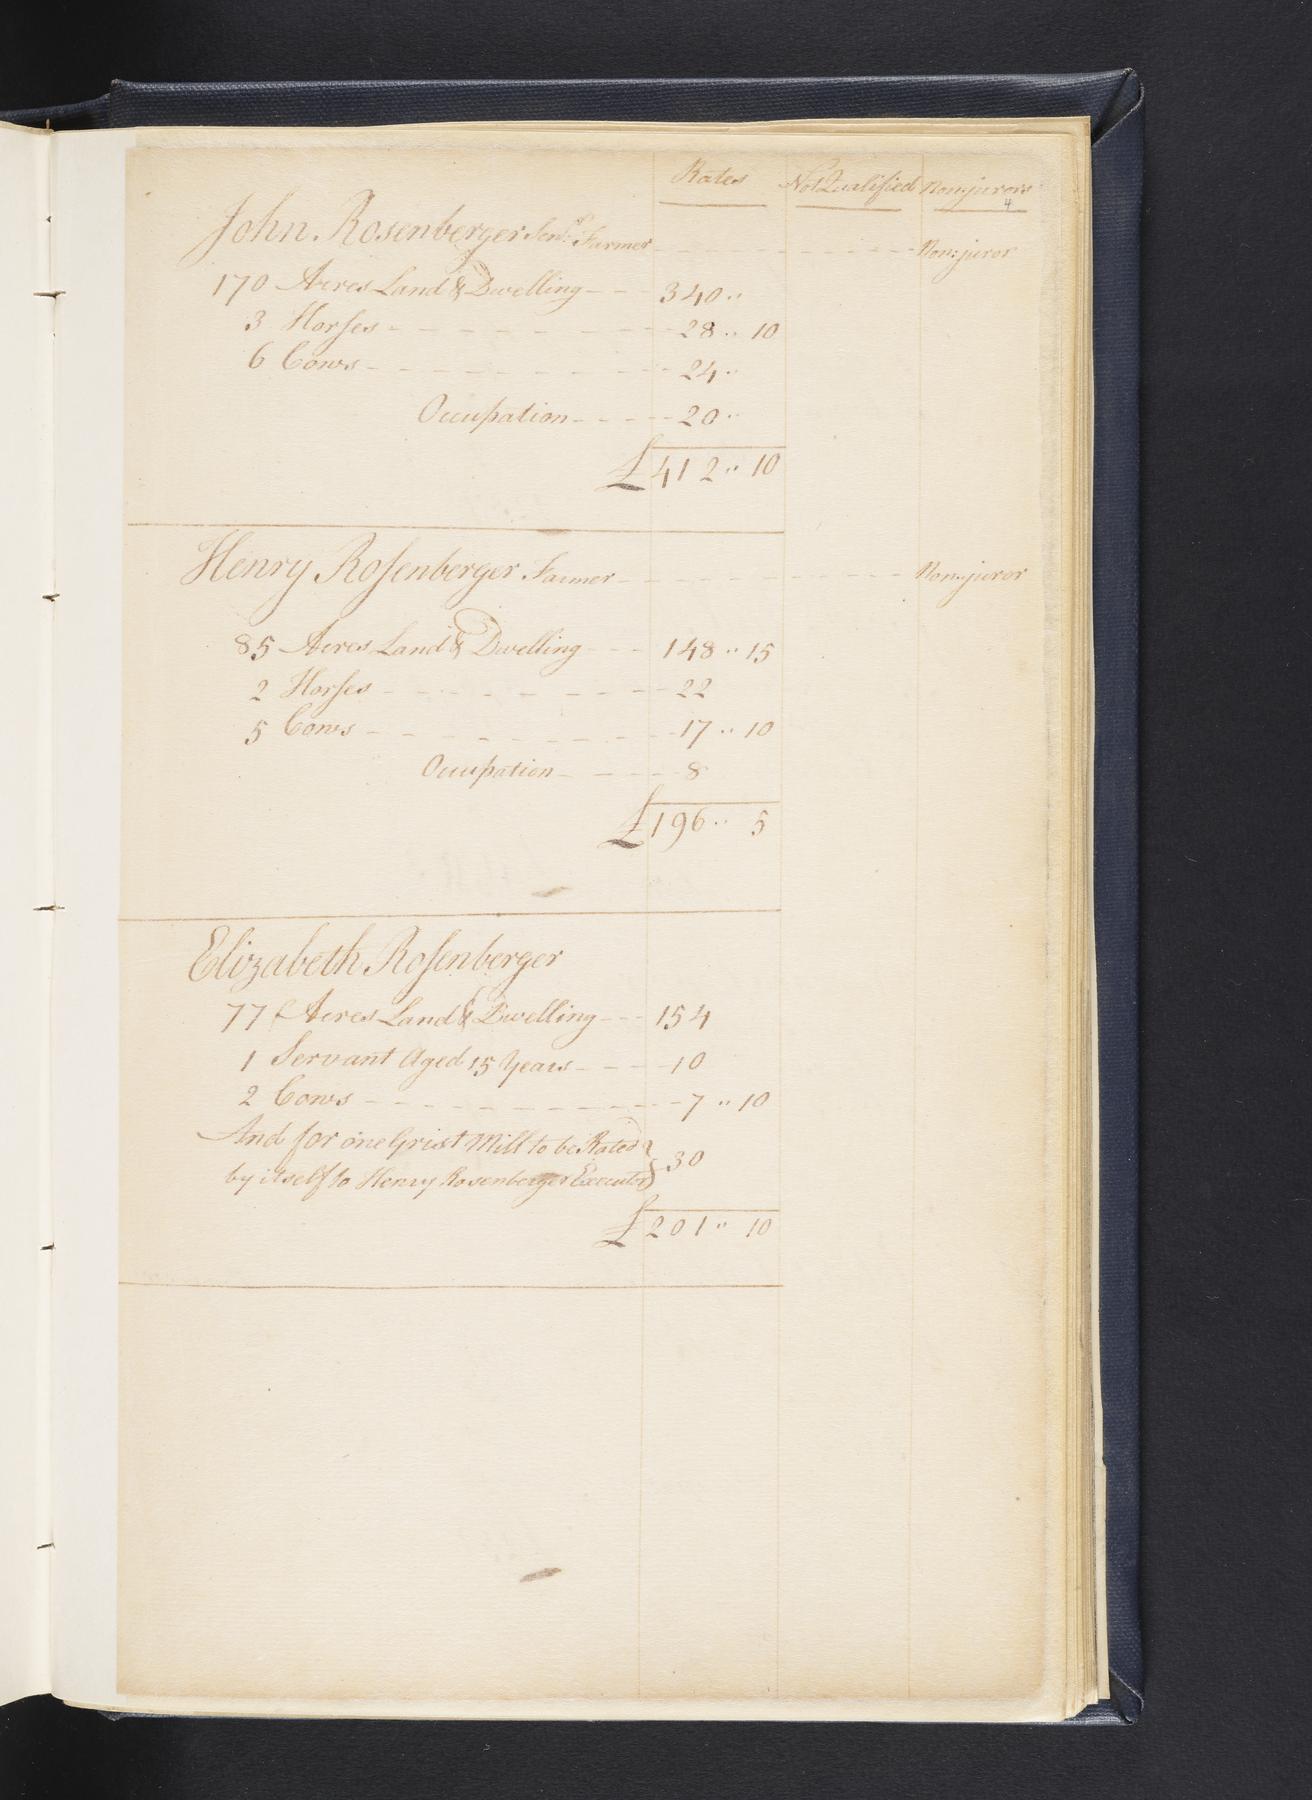 Rates Not Qualified Non:jurors
4
John Rosenberger Senr. Farmer - - - - - - - - Non:juror
170 Acres Land & Dwelling - - - 340 ..
3 Horses - - - - - - - - 28 .. 10
6 Cows - - - - - - - - 24 ..
Occupation - - - - - 20 ..
£ 412 .. 10
Henry Rosenberger Farmer - - - - - - - - Non:juror
85 Acres Land & Dwelling - - - 148 .. 15
2 Horses - - - - - - - - 22
5 Cows - - - - - - - - 17 .. 10
Occupation - - - - - 8
£ 196 .. 5
Elizabeth Rosenberger
77 Acres Land & Dwelling - - - 154
1 Servant Aged 15 Years - - - - 10
2 Cows - - - - - - - - 7 .. 10
And for one Grist Mill to be Rated
by itself to Henry Rosenberger Executor } 30
£ 201 .. 10